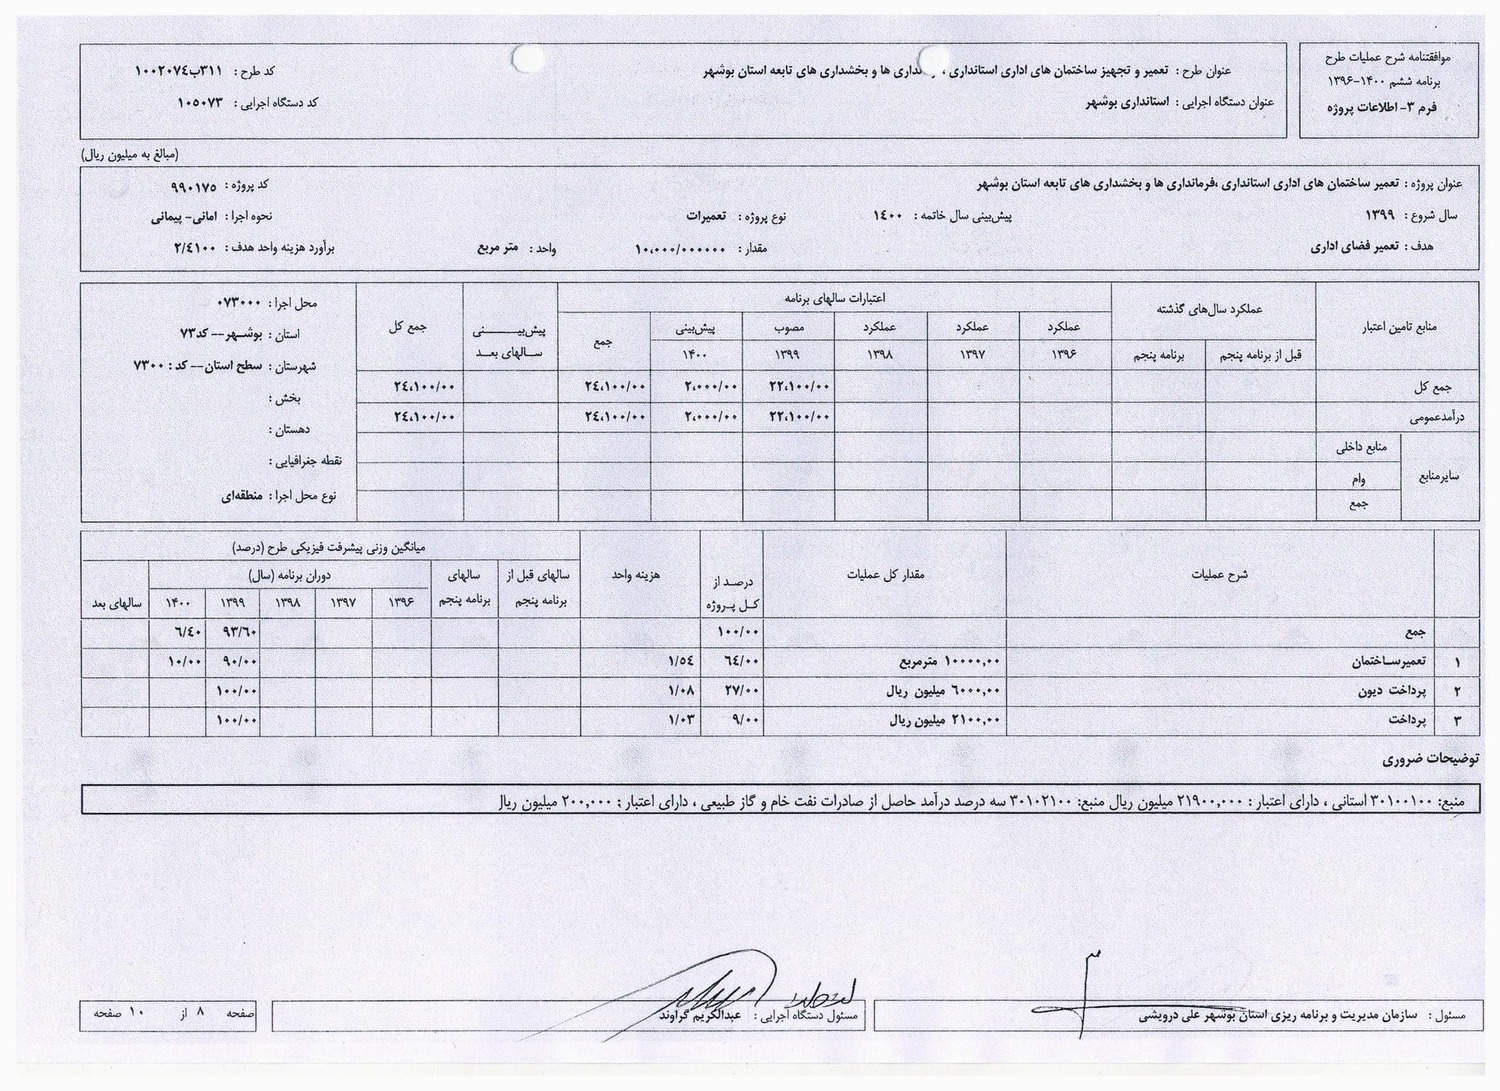 موافقتنامه شرح عملیات طرح
برنامه ششم ۱۴۰۰-۱۳۹۶
فرم ۳- اطلاعات پروژه
عنوان طرح : تعمیر و تجهیز ساختمان های اداری استانداری ، نداری ها و بخشداری های تابعه استان بوشهر
کد طرح : ۳۱۱ب۱۰۰۲۰۷۴
عنوان دستگاه اجرایی : استانداری بوشهر
کد دستگاه اجرایی : ۱۰۵۰۷۳
(مبالغ به میلیون ریال)
عنوان پروژه : تعمیر ساختمان های اداری استانداری ،فرمانداری ها و بخشداری های تابعه استان بوشهر
کد پروژه : ۹۹۰۱۷۵
سال شروع : ۱۳۹۹
پیش‌بینی سال خاتمه : ۱٤۰۰
نوع پروژه : تعمیرات
نحوه اجرا : امانی- پیمانی
هدف : تعمیر فضای اداری
مقدار : ۱۰,۰۰۰/۰۰۰۰۰۰
واحد : متر مربع
برآورد هزینه واحد هدف : ۲/٤۱۰۰
منابع تامین اعتبار
عملکرد سال‌های گذشته
اعتبارات سالهای برنامه
پیش‌بیـــــنی سـالهای بعـد
جمع کل
قبل از برنامه پنجم
برنامه پنجم
عملکرد ۱۳۹۶
عملکرد ۱۳۹۷
عملکرد ۱۳۹۸
مصوب ۱۳۹۹
پیش‌بینی ۱۴۰۰
جمع
جمع کل ۲۲،۱۰۰/۰۰ ۲،۰۰۰/۰۰ ۲٤،۱۰۰/۰۰ ۲٤،۱۰۰/۰۰
درآمدعمومی ۲۲،۱۰۰/۰۰ ۲،۰۰۰/۰۰ ۲٤،۱۰۰/۰۰ ۲٤،۱۰۰/۰۰
سایرمنابع
منابع داخلی
وام
جمع
محل اجرا : ۰۷۳۰۰۰
استان : بوشـهر-- کد۷۳
شهرستان : سطح استان-- کد : ۷۳۰۰
بخش :
دهستان :
نقطه جغرافیایی :
نوع محل اجرا : منطقه‌ای
شرح عملیات
مقدار کل عملیات
درصد از کـل پـروژه
هزینه واحد
میانگین وزنی پیشرفت فیزیکی طرح (درصد)
سالهای قبل از برنامه پنجم
سالهای برنامه پنجم
دوران برنامه (سال)
سالهای بعد
۱۳۹۶ ۱۳۹۷ ۱۳۹۸ ۱۳۹۹ ۱۴۰۰
جمع ۱۰۰/۰۰ ۹۳/٦۰ ٦/٤۰
۱ تعمیرساختمان ۱۰۰۰۰,۰۰ مترمربع ٦٤/۰۰ ۱/۵٤ ۹۰/۰۰ ۱۰/۰۰
۲ پرداخت دیون ٦۰۰۰,۰۰ میلیون ریال ۲۷/۰۰ ۱/۰۸ ۱۰۰/۰۰
۳ پرداخت ۲۱۰۰,۰۰ میلیون ریال ۹/۰۰ ۱/۰۳ ۱۰۰/۰۰
توضیحات ضروری
منبع: ۳۰۱۰۰۱۰۰ استانی ، دارای اعتبار : ۲۱۹۰۰,۰۰۰ میلیون ریال منبع: ۳۰۱۰۲۱۰۰ سه درصد درآمد حاصل از صادرات نفت خام و گاز طبیعی ، دارای اعتبار : ۲۰۰,۰۰۰ میلیون ریال
مسئول : سازمان مدیریت و برنامه ریزی استان بوشهر علی درویشی
مسئول دستگاه اجرایی : عبدالکریم گراوند
صفحه ۸ از ۱۰ صفحه